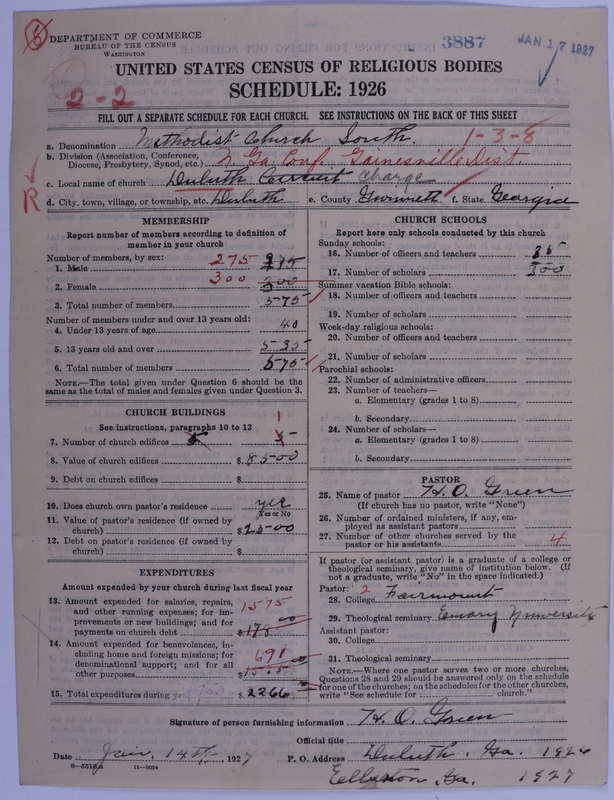 DEPARTMENT OF COMMERCE
BUREAU OF THE CENSUS
WASHINGTON
3887
JAN 17 1927
UNITED STATES CENSUS OF RELIGIOUS BODIES
2-2
SCHEDULE: 1926
FILL OUT A SEPARATE SCHEDULE FOR EACH CHURCH. SEE INSTRUCTIONS ON THE BACK OF THIS SHEET
a. Denomination Methodist Church South 1-3-8
b. Division (Association, Conference, Diocese, Presbytery, Synod, etc.) N. Ga. Conf. Gainesville Dist.
c. Local name of church Duluth Circuit Charge
R
d. City, town, village, or township, etc. Duluth e. County Gwinnett f. State Georgia
MEMBERSHIP
Report number of members according to definition of
member in your church
Number of members, by sex:
1. Male 275
2. Female 300 300
3. Total number of members 575
Number of members under and over 13 years old:
4. Under 13 years of age 40
5. 13 years old and over 535
6. Total number of members 575
NOTE.—The total given under Question 6 should be the
same as the total of males and females given under Question 3.
CHURCH BUILDINGS
See instructions, paragraphs 10 to 12
7. Number of church edifices 5 1 5
8. Value of church edifices $8500
9. Debt on church edifices $
10. Does church own pastor's residence yes
Yes or No
11. Value of pastor's residence (if owned by
church) $2500
12. Debt on pastor's residence (if owned by
church) $
EXPENDITURES
Amount expended by your church during last fiscal year
13. Amount expended for salaries, repairs,
and other running expenses; for im-
provements or new buildings; and for
payments on church debt 1575
14. Amount expended for benevolences, in-
cluding home and foreign missions; for
denominational support; and for all
other purposes 691
15. Total expenditures during year $2266
CHURCH SCHOOLS
Report here only schools conducted by this church
Sunday schools:
16. Number of officers and teachers 35
17. Number of scholars 300
Summer vacation Bible schools:
18. Number of officers and teachers
19. Number of scholars
Week-day religious schools:
20. Number of officers and teachers
21. Number of scholars
Parochial schools:
22. Number of administrative officers
23. Number of teachers—
a. Elementary (grades 1 to 8)
b. Secondary
24. Number of scholars—
a. Elementary (grades 1 to 8)
b. Secondary
PASTOR
25. Name of pastor H. O. Green
(If church has no pastor, write "None")
26. Number of ordained ministers, if any, em-
ployed as assistant pastors
27. Number of other churches served by the
pastor or his assistants 4
If pastor (or assistant pastor) is a graduate of a college or
theological seminary, give name of institution below. (If
not a graduate, write "No" in the space indicated.)
Pastor: 2
28. College Fairmount
29. Theological seminary Emory University
Assistant pastor:
30. College
31. Theological seminary
NOTE.—Where one pastor serves two or more churches,
Questions 28 and 29 should be answered only on the schedule
for one of the churches; on the schedules for the other churches,
write "See schedule for church."
Signature of person furnishing information H. O. Green
Official title
Date Jan. 14th, 1927 P. O. Address Duluth, Ga. 1926
8-5518a 11-9034
Elberton, Ga. 1927